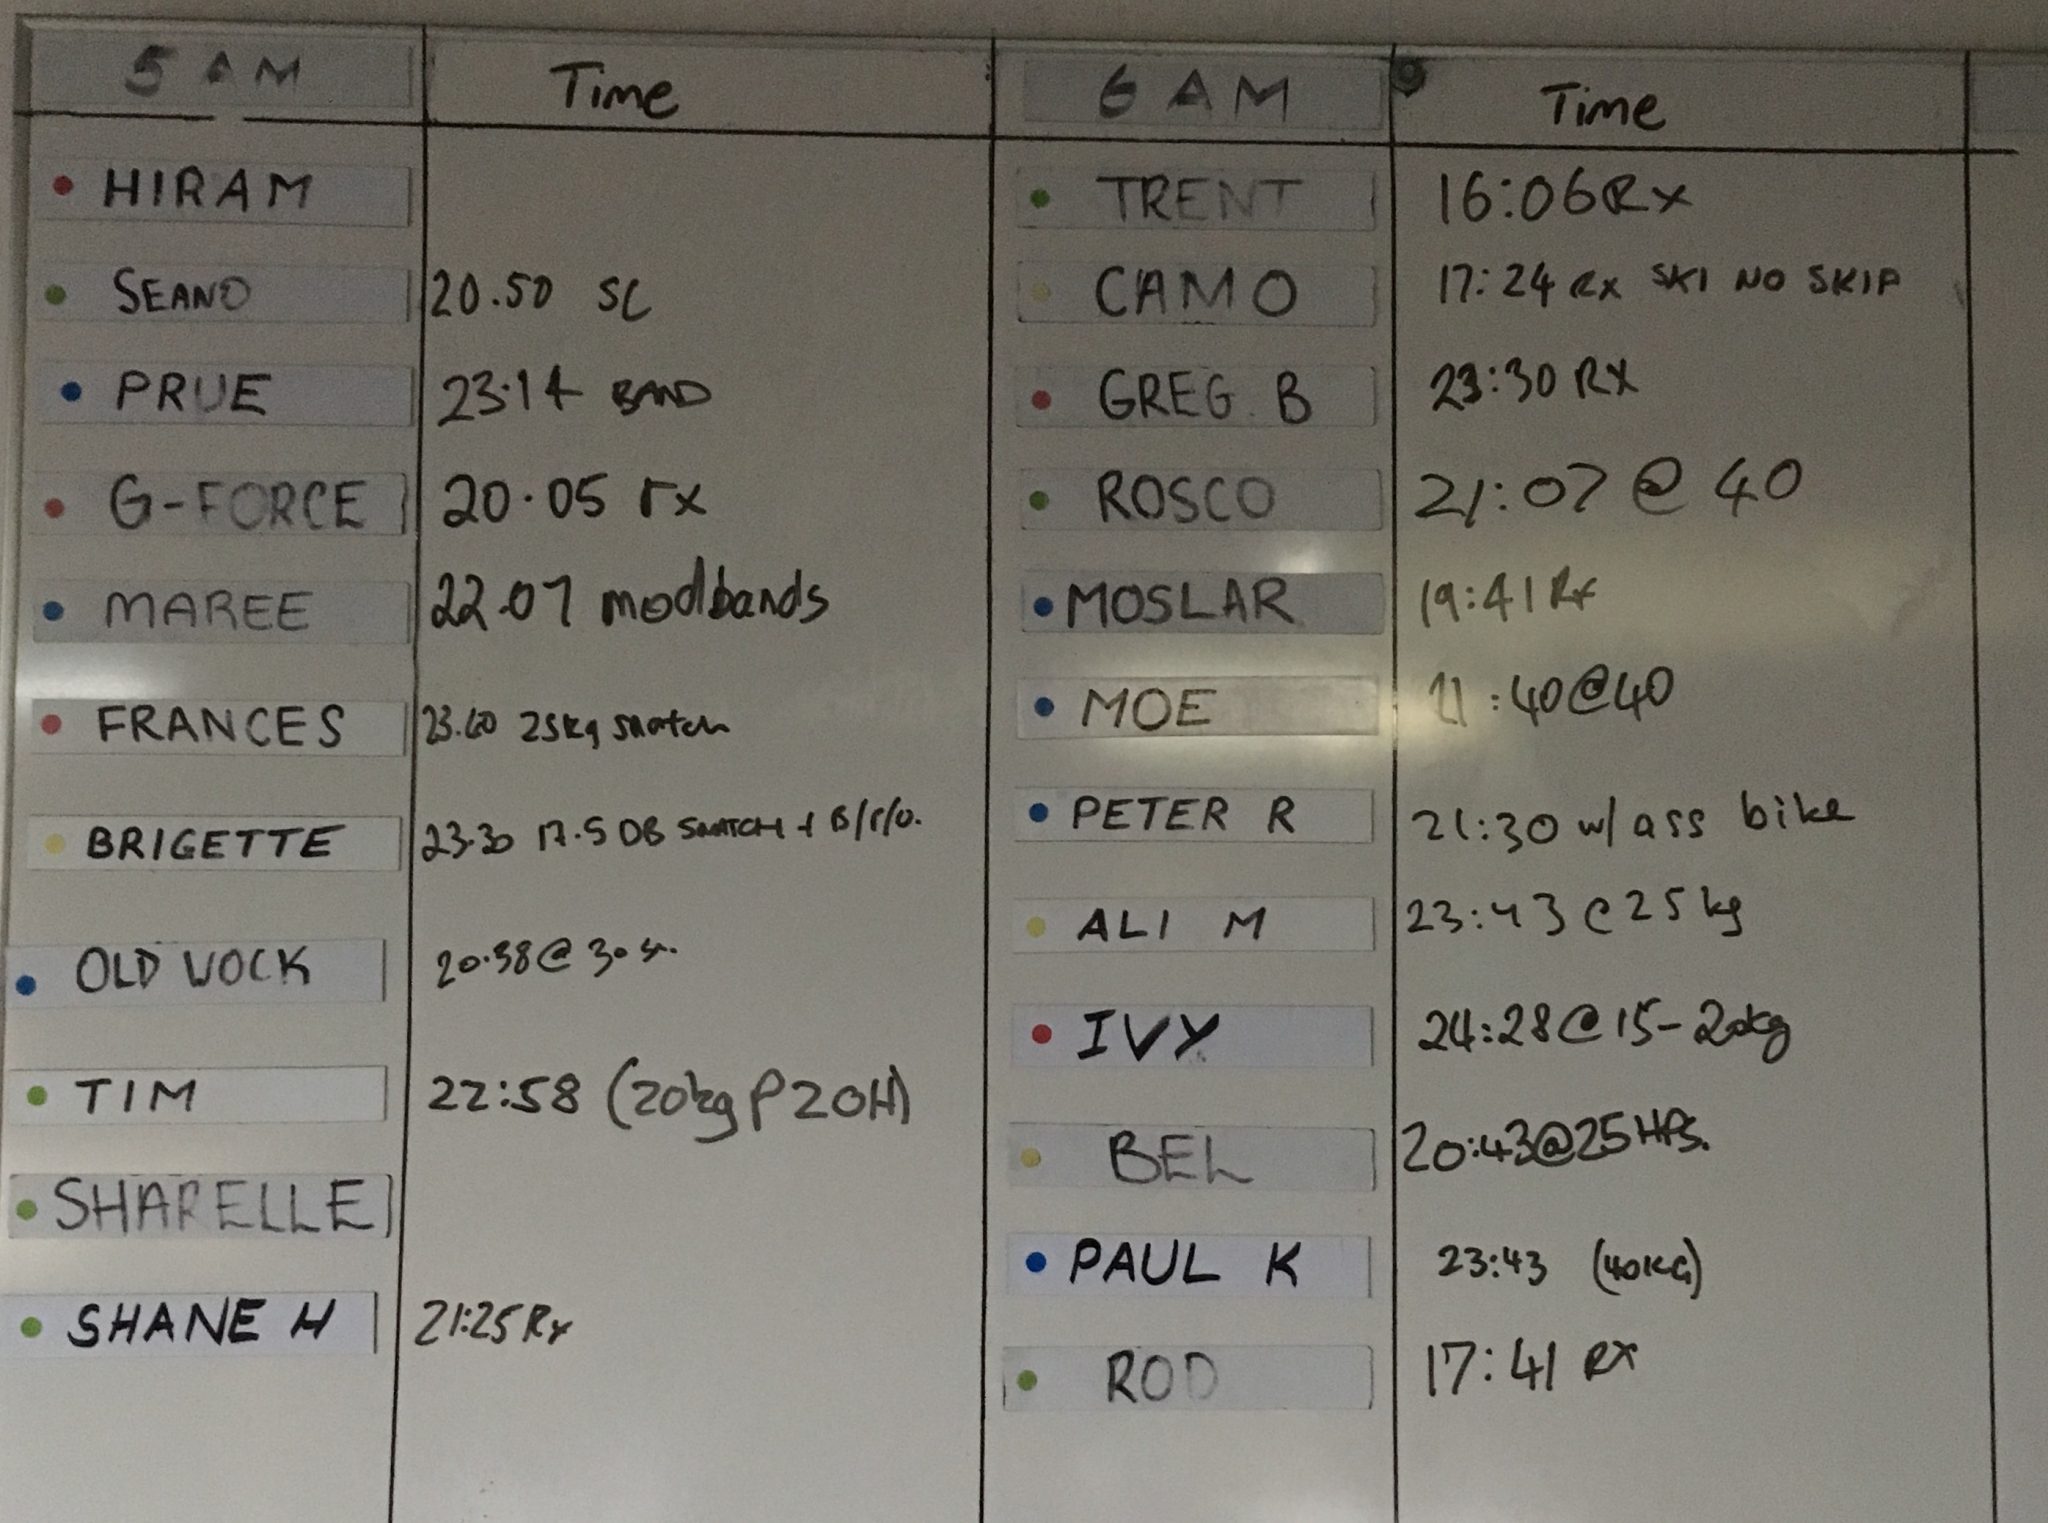 5 AM Time 6 AM Time
HIRAM TRENT 16:06 Rx
SEANO 20.50 SC CAMO 17:24 Rx SKI NO SKIP
PRUE 23.14 BAND GREG B 23:30 RX
G-FORCE 20.05 rx ROSCO 21:07 @ 40
MAREE 22.07 modbands MOSLAR 19:41 Rx
FRANCES 25kg snatch MOE :40@40
BRIGETTE 23.30 17.5 DB SNATCH + PETER R 21:30 w/ ass bike
OLD 20.38@30 ALI M 23:43 @ 25kg
TIM 22:58 (20kg P2OH) IVY 24:28@15-20kg
SHARELLE BEL 20:43@25
SHANE H 21:25 Rx PAUL K 23:43 (40KG)
ROD 17:41 RX